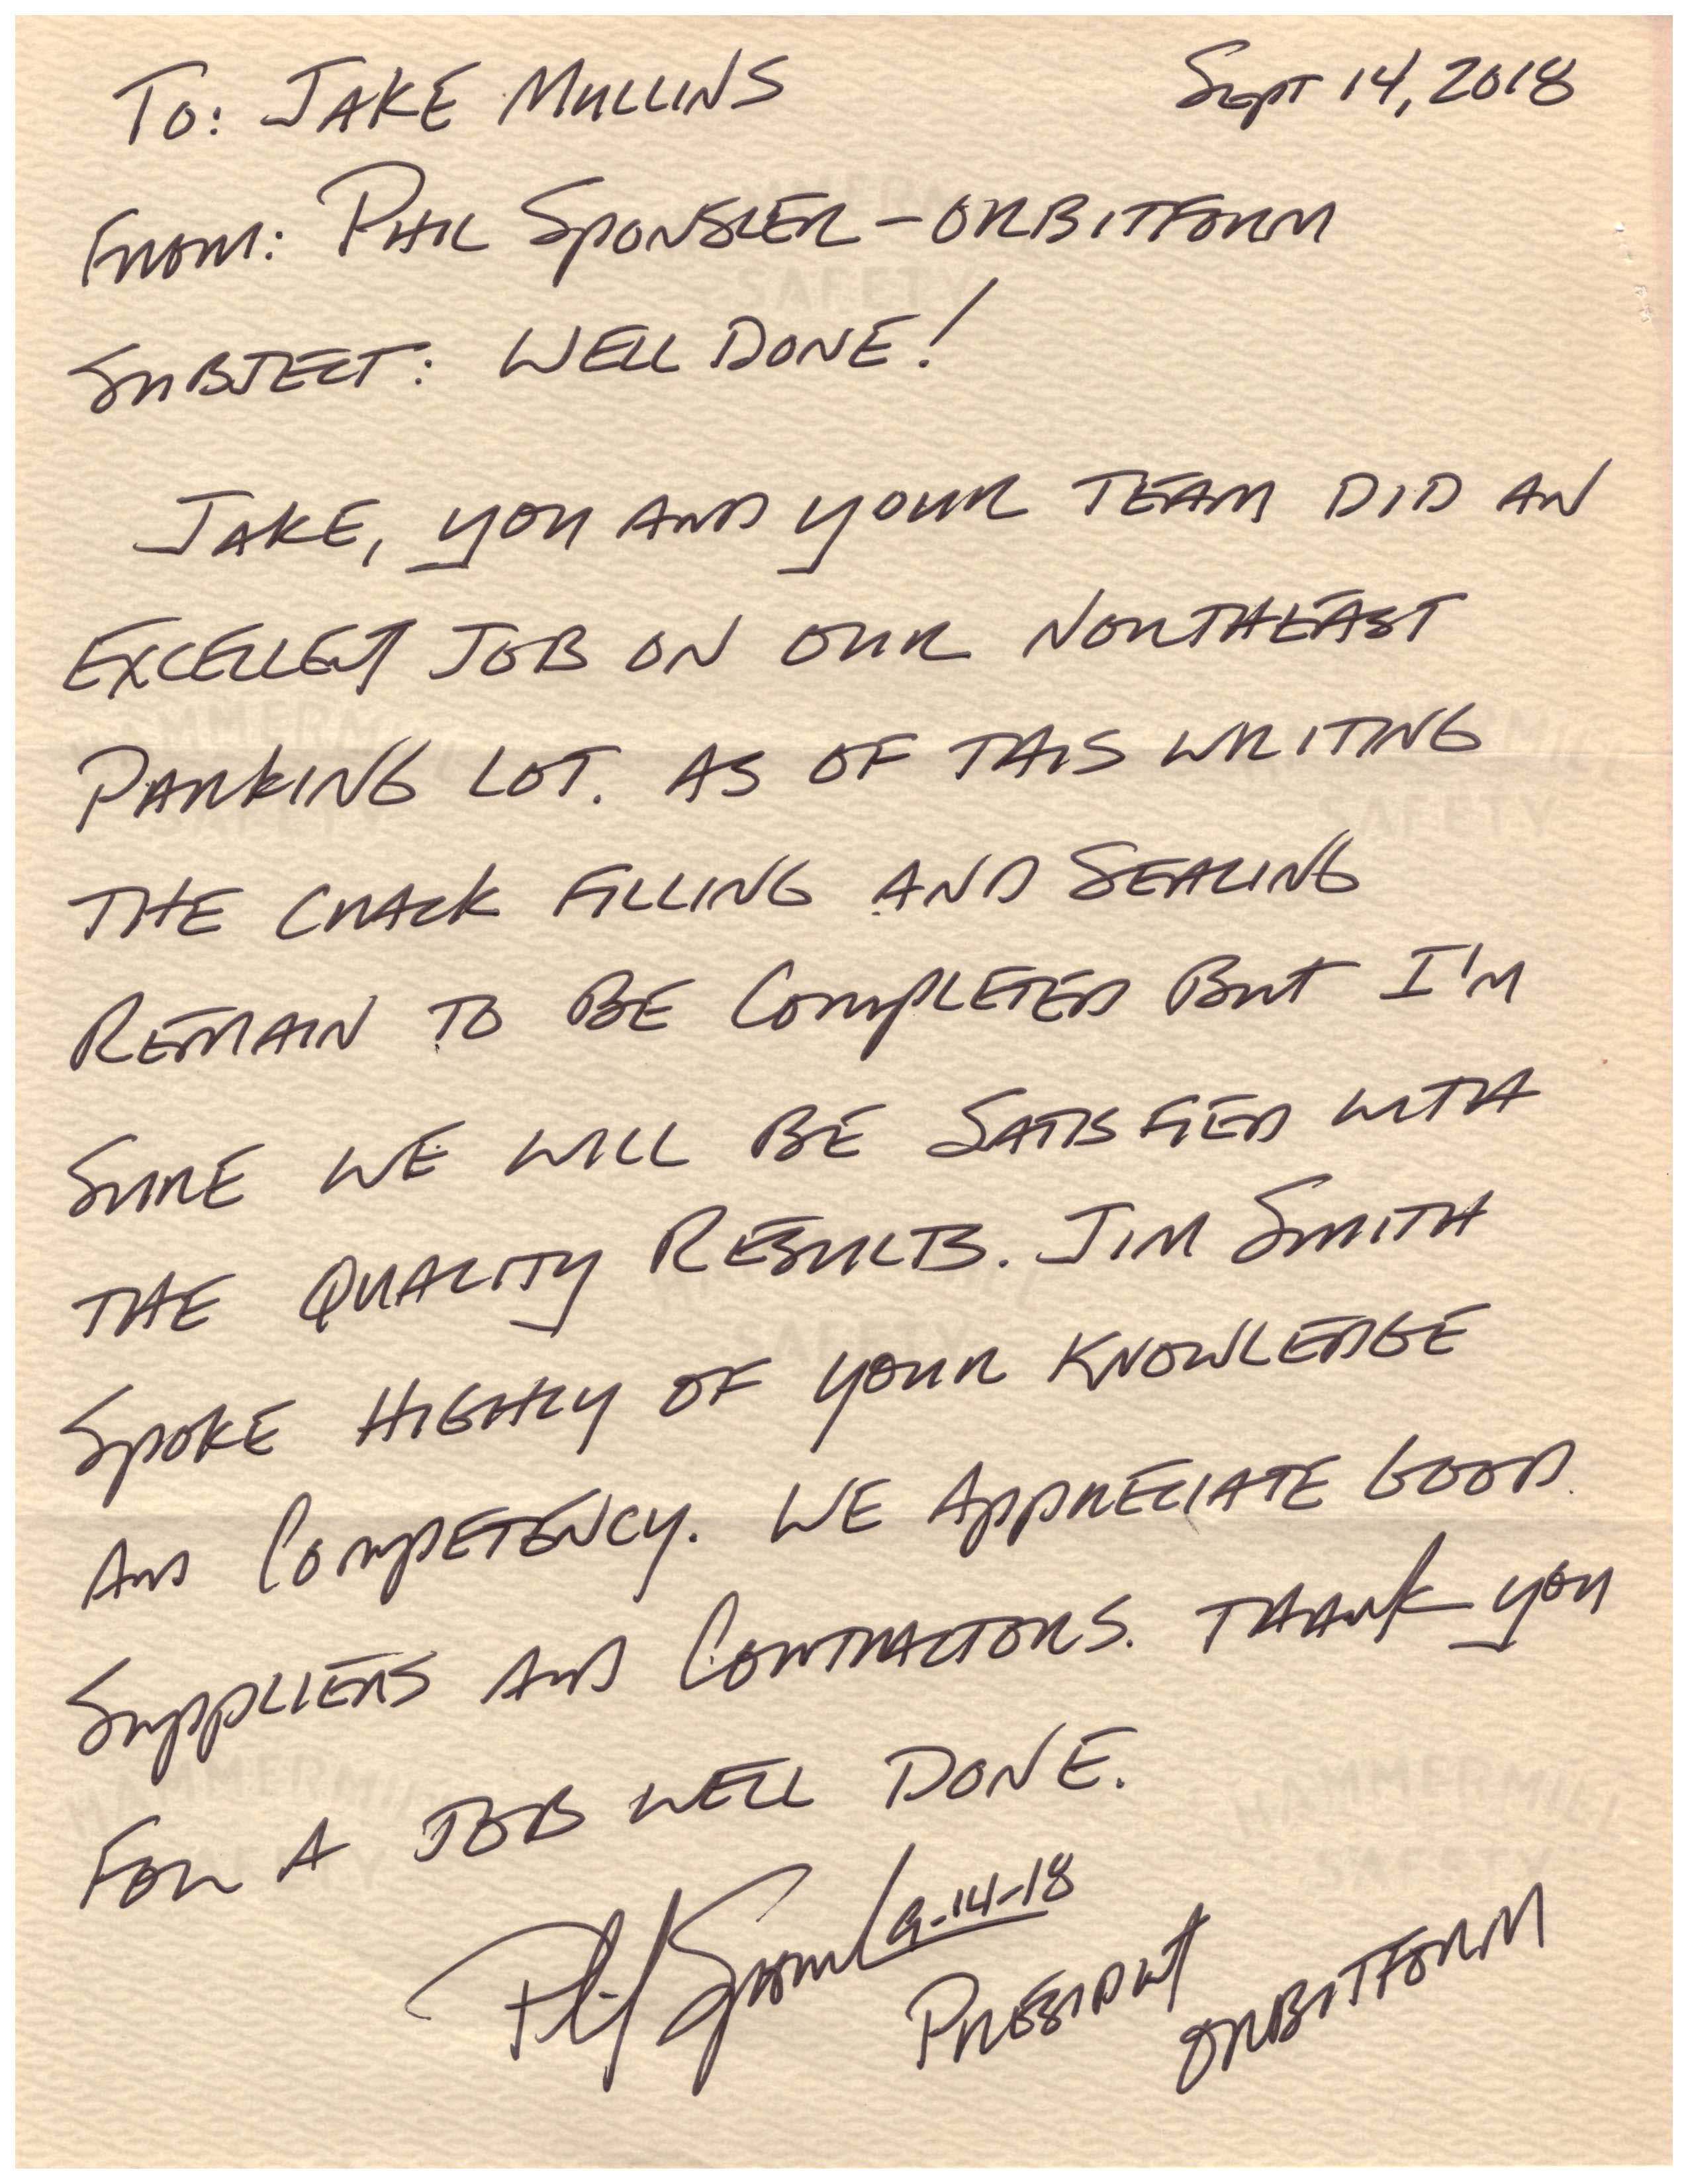 TO: JAKE MULLINS Sept 14, 2018
FROM: PHIL SPONSLER - ORBITFORM
SUBJECT: WELL DONE!
JAKE, YOU AND YOUR TEAM DID AN
EXCELLENT JOB ON OUR NORTHEAST
PARKING LOT. AS OF THIS WRITING
THE CRACK FILLING AND SEALING
REMAIN TO BE COMPLETED BUT I'M
SURE WE WILL BE SATISFIED WITH
THE QUALITY RESULTS. JIM SMITH
SPOKE HIGHLY OF YOUR KNOWLEDGE
AND COMPETENCY. WE APPRECIATE GOOD
SUPPLIERS AND CONTRACTORS. THANK YOU
FOR A JOB WELL DONE.
Phil Sponsler 9-14-18
PRESIDENT
ORBITFORM
HAMMERMILL
SAFETY